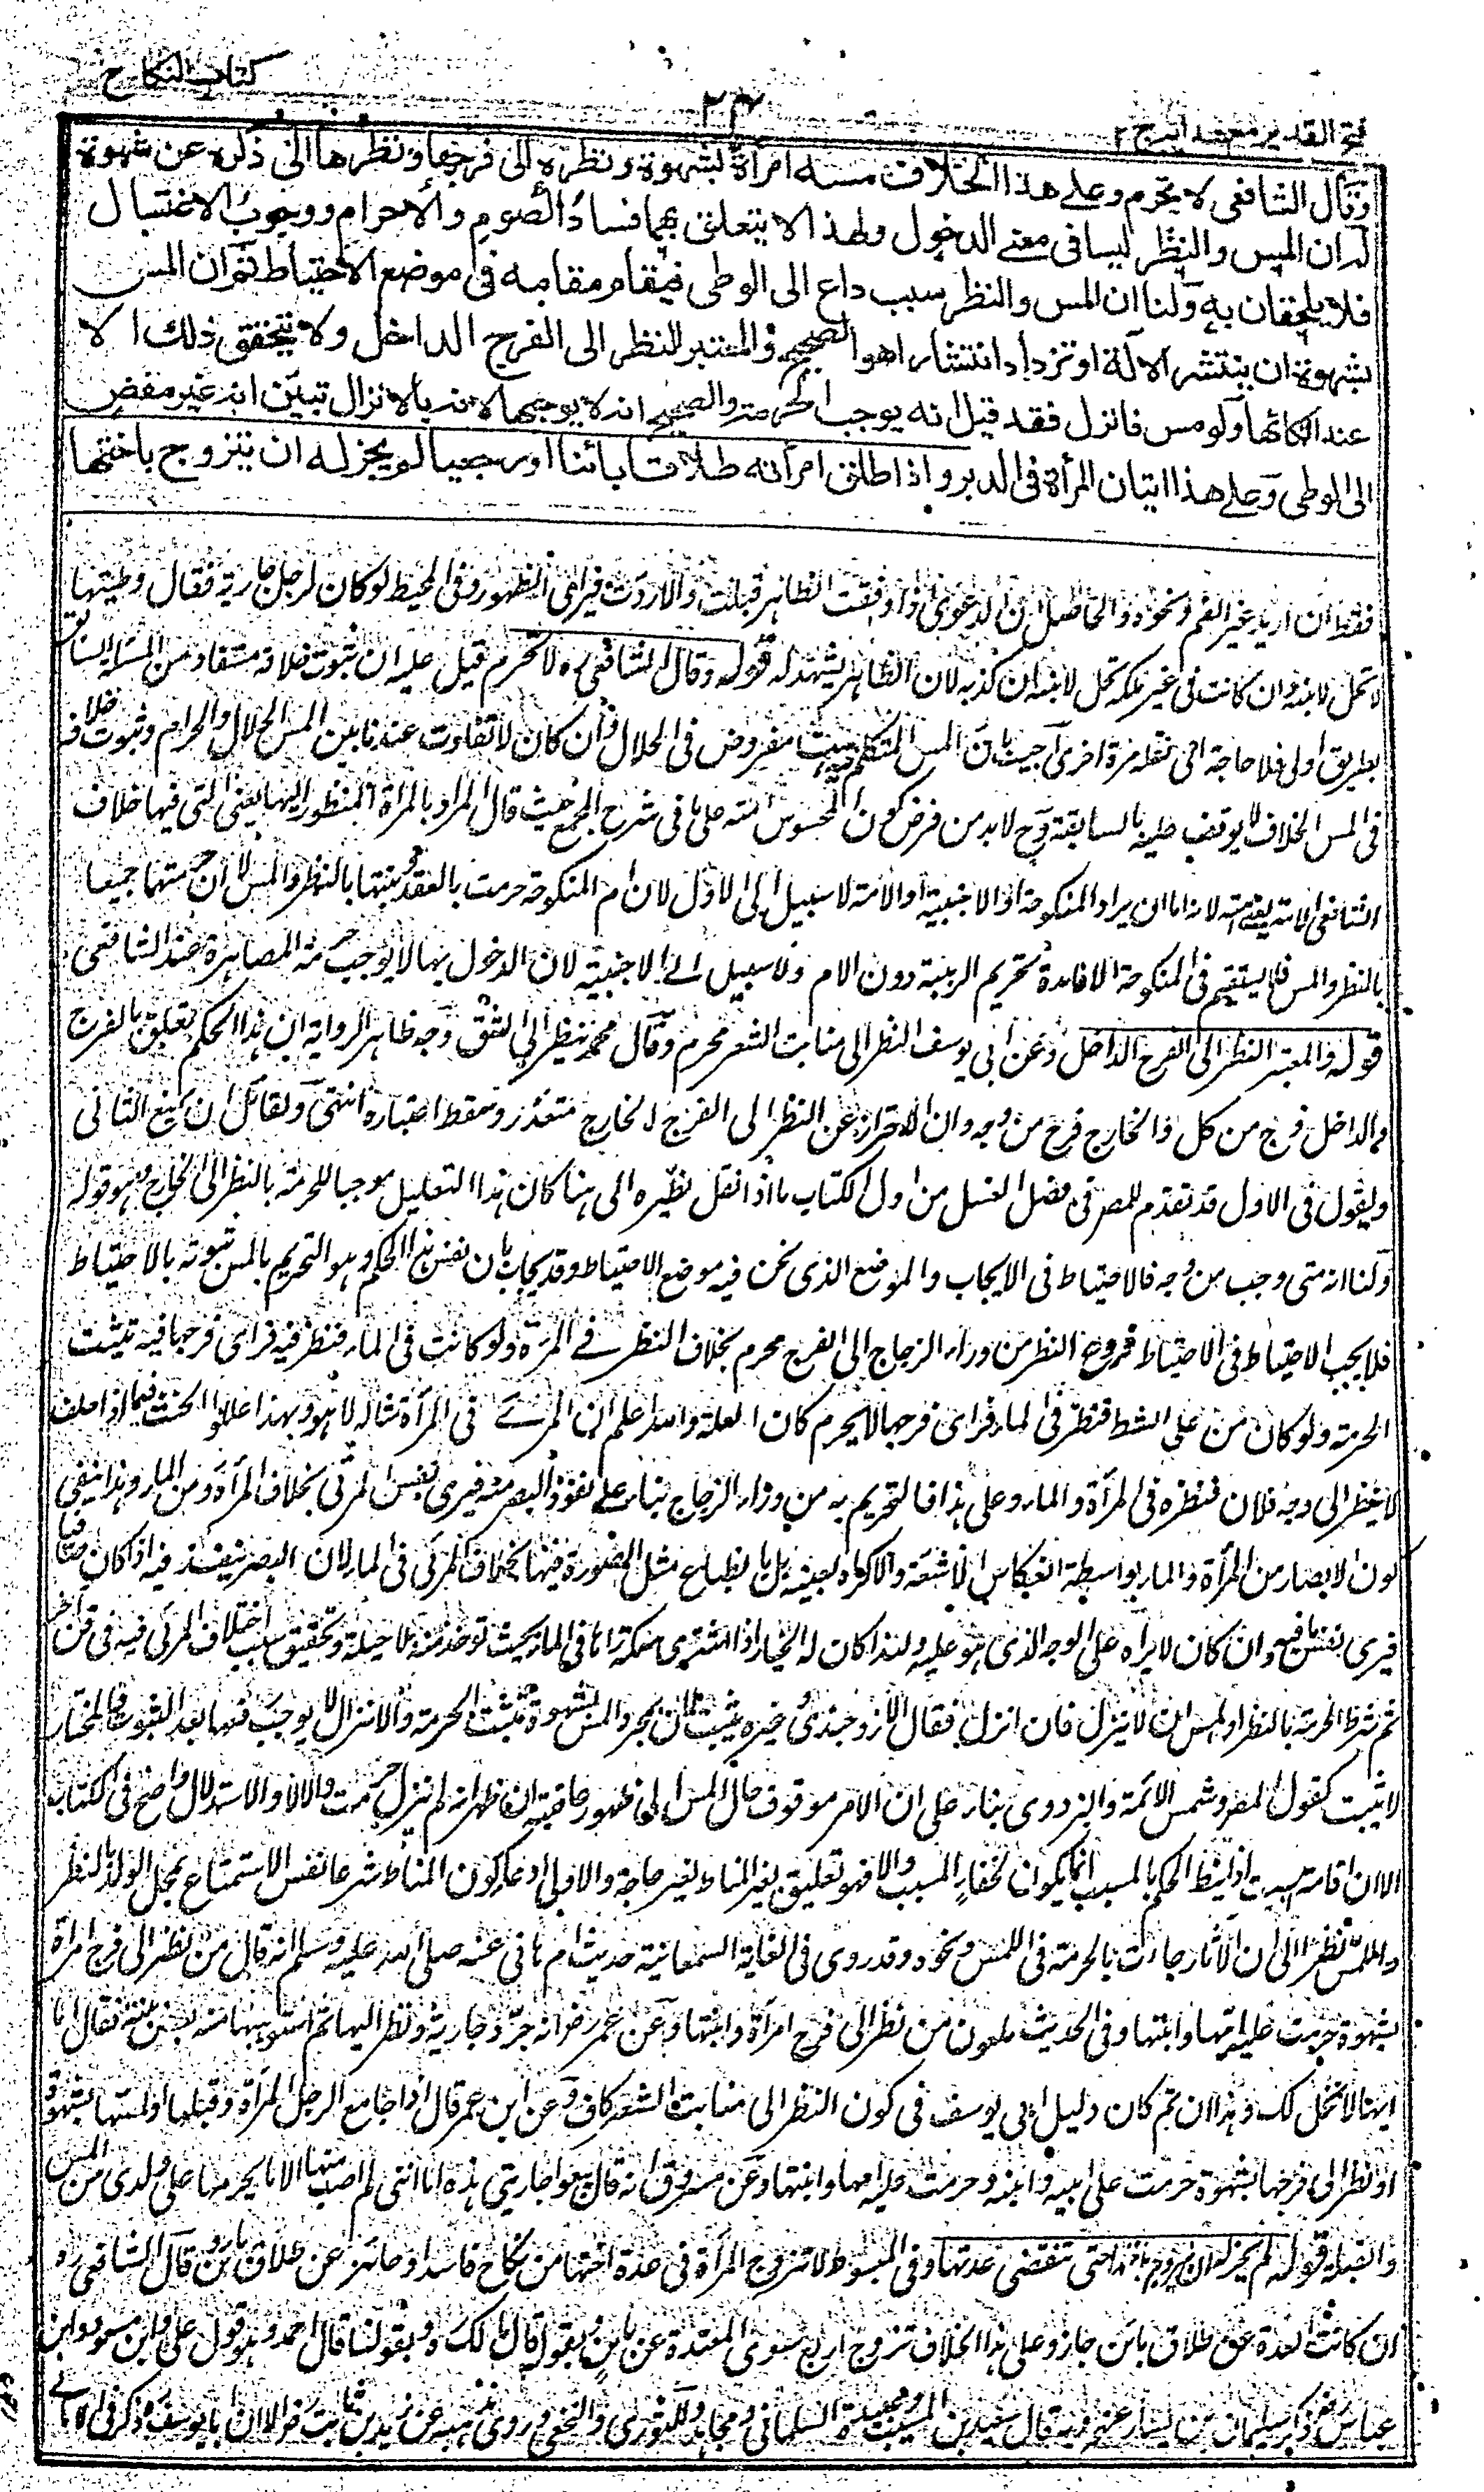 كتاب النكاح
٢٤
فتح القدير مع هداية ج ٢
وقال الشافعي لا يحرم وعلى هذا الخلاف مسه امرأة بشهوة ونظره الى فرجها ونظرها الى ذكره عن شهوة
له ان المس والنظر ليسا في معنى الدخول ولهذا لا يتعلق بهما فساد الصوم والاحرام ووجوب الاغتسال
فلا يلحقان به ولنا ان المس والنظر سبب داع الى الوطى فيقام مقامه في موضع الاحتياط ثم ان المس
بشهوة ان ينتشر الآلة او تزداد انتشارا هو الصحيح والمعتبر النظر الى الفرج الداخل ولا يتحقق ذلك الا
عند اتكائها ولو مس فانزل فقد قيل انه يوجب الحرمة والصحيح انه لا يوجبها لانه بالانزال تبين انه غير مفض
الى الوطى وعلى هذا اتيان المرأة في الدبر واذا طلق امرأته طلاقا بائنا او رجعيا لم يجز له ان يتزوج باختها
فقط ان اريد غير الفم ونحوه والحاصل ان الدعوى اذا وافقت الظاهر قبلت والا ردت فيراعى الظهور وفى المحيط لو كان لرجل جارية فقال وطيتها
لا تحل لابنه وان كانت في غير ملكه تحل لابنه ان كذبه لان الظاهر يشهد له قوله وقال الشافعي ره لا تحرم قيل عليه ان ثبوت خلافه مستفاد من المسئلة السابقة
بطريق اولى فلا حاجة الى نقله مرة اخرى اجيب بان المس المتكلم فيه مفروض في الحلال وان كان لا تفاوت عندنا بين المس الحلال والحرام وثبوت خلافه
في المس الحلال لا يوقف عليه بالسابقة وح لا بد من فرض كون الممسوس امته على ما في شرح المجمع حيث قال المراد بالمرأة المنظور اليها يعنى التى فيها خلاف
الشافعى الامة لانه اما ان يراد المنكوحة او الاجنبية او الامة لا سبيل الى الاول لان ام المنكوحة حرمت بالعقد وبنتها بالنظر والمس لا ان حرمتهما جميعا
بالنظر والمس فلا يستقيم في المنكوحة الا فائدة تحريم الربيبة دون الام ولا سبيل الى الاجنبية لان الدخول بها لا يوجب حرمة المصاهرة عند الشافعى
قوله والمعتبر النظر الى الفرج الداخل وعن ابى يوسف النظر الى منابت الشعر محرم وقال محمد ينظر الى الشق وجه ظاهر الرواية ان هذا الحكم تعلق بالفرج
والداخل فرج من كل والخارج فرج من وجه وان الاحتراز عن النظر الى الفرج الخارج متعذر وسقط اعتباره انتهى ولقائل ان يمنع الثانى
ويقول في الاول قد تقدم للمصر في فصل الغسل من اول الكتاب ما اذا نقل نظيره الى هنا كان هذا التعليل موجبا للحرمة بالنظر الى الخارج وهو قوله
ولنا انه متى وجب من وجه فالاحتياط في الايجاب والموضع الذى نحن فيه موضع الاحتياط وقد يجاب بان نفس هذا الحكم وهو التحريم بالمس ثبوته بالاحتياط
فلا يجب الاحتياط في الاحتياط فروع النظر من وراء الزجاج الى الفرج محرم بخلاف النظر في المرآة ولو كانت في الماء فنظر فيه فراى فرجها فيه تثبت
الحرمة ولو كان من على الشط فنظر في الماء فراى فرجها لا يحرم كان العلة والله اعلم ان المرئي في المرآة مثاله لا هو وبهذا عللوا الحنث فيما اذا حلف
لا ينظر الى وجه فلان فنظره في المرآة والماء وعلى هذا فالتحريم به من وراء الزجاج بناء على نفوذ البصر منه فيرى نفس المرئى بخلاف المرآة ومن الماء وهذا ينفى
كون الابصار من المرآة والماء بواسطة انعكاس الاشعة والا لرآه بعينه بل بانطباع مثل الصورة فيها بخلاف المرئى في الماء لان البصر ينفذ فيه اذا كان صافيا
فيرى نفس ما فيه وان كان لا يراه على الوجه الذى هو عليه ولهذا كان له الخيار اذا اشترى سمكة رآها في الماء بحيث توخذ منه بلا حيلة وتحقيق سبب اختلاف المرئى فيه في فن آخر
ثم شرط الحرمة بالنظر او المس ان لا ينزل فان انزل فقال الاوزجندى وغيره تثبت لان بمجرد المس بشهوة تثبت الحرمة والانزال لا يوجب رفعها بعد الثبوت والمختار
لا تثبت كقول المصر وشمس الائمة والبزدوى بناء على ان الامر موقوف حال المس الى ظهور عاقبته ان ظهر انه لم ينزل حرمت والا لا والاستدلال واضح في الكتاب
الا ان اقامة السبب اذا نيط الحكم بالمسبب انما يكون لخفاء المسبب والا فهو تعليق بغير المناط لغير حاجة والاولى ادعاء كون المناط شرعا نفس الاستمتاع بمحل الولد بالنظر
واللمس نظرا الى ان الآثار جاءت بالحرمة في اللمس ونحوه وقد روى في الغاية السمعانية حديث ام هانى عنه صلى الله عليه وسلم انه قال من نظر الى فرج امرأة
بشهوة حرمت عليه امها وابنتها وفى الحديث ملعون من نظر الى فرج امرأة وابنتها وعن عمر رض انه جرد جارية ونظر اليها ثم استوهبها منه بعض بنيه فقال اما
انها لا تحل لك وهذا ان تم كان دليل ابى يوسف في كون النظر الى منابت الشعر كاف وعن ابن عمر قال اذا جامع الرجل المرأة وقبلها او لمسها بشهوة
او نظر الى فرجها بشهوة حرمت على ابيه وابنه وحرمت عليه امها وابنتها وعن مسروق انه قال بيعوا جاريتى هذه اما انى لم اصب منها الا ما يحرمها على ولدى من المس
والقبلة قوله لم يجز له ان يتزوج باختها حتى تنقضى عدتها وفى المبسوط لا تتزوج المرأة في عدة اختها من نكاح فاسد او جائز عن طلاق بائن وقال الشافعى ره
ان كانت العدة عن طلاق بائن جاز وعلى هذا الخلاف تزوج اربع سوى المعتدة عن بائن بقوله قال مالك وبقولنا قال احمد وهو قول على وابن مسعود وابن
عباس رض ذكر سليمان بن يسار عنهم وبه قال سعيد بن المسيب وعبيدة السلمانى ومجاهد والثورى والنخعى وروى مذهبه عن زيد بن ثابت رض الا ان ابا يوسف ذكر في الامالى